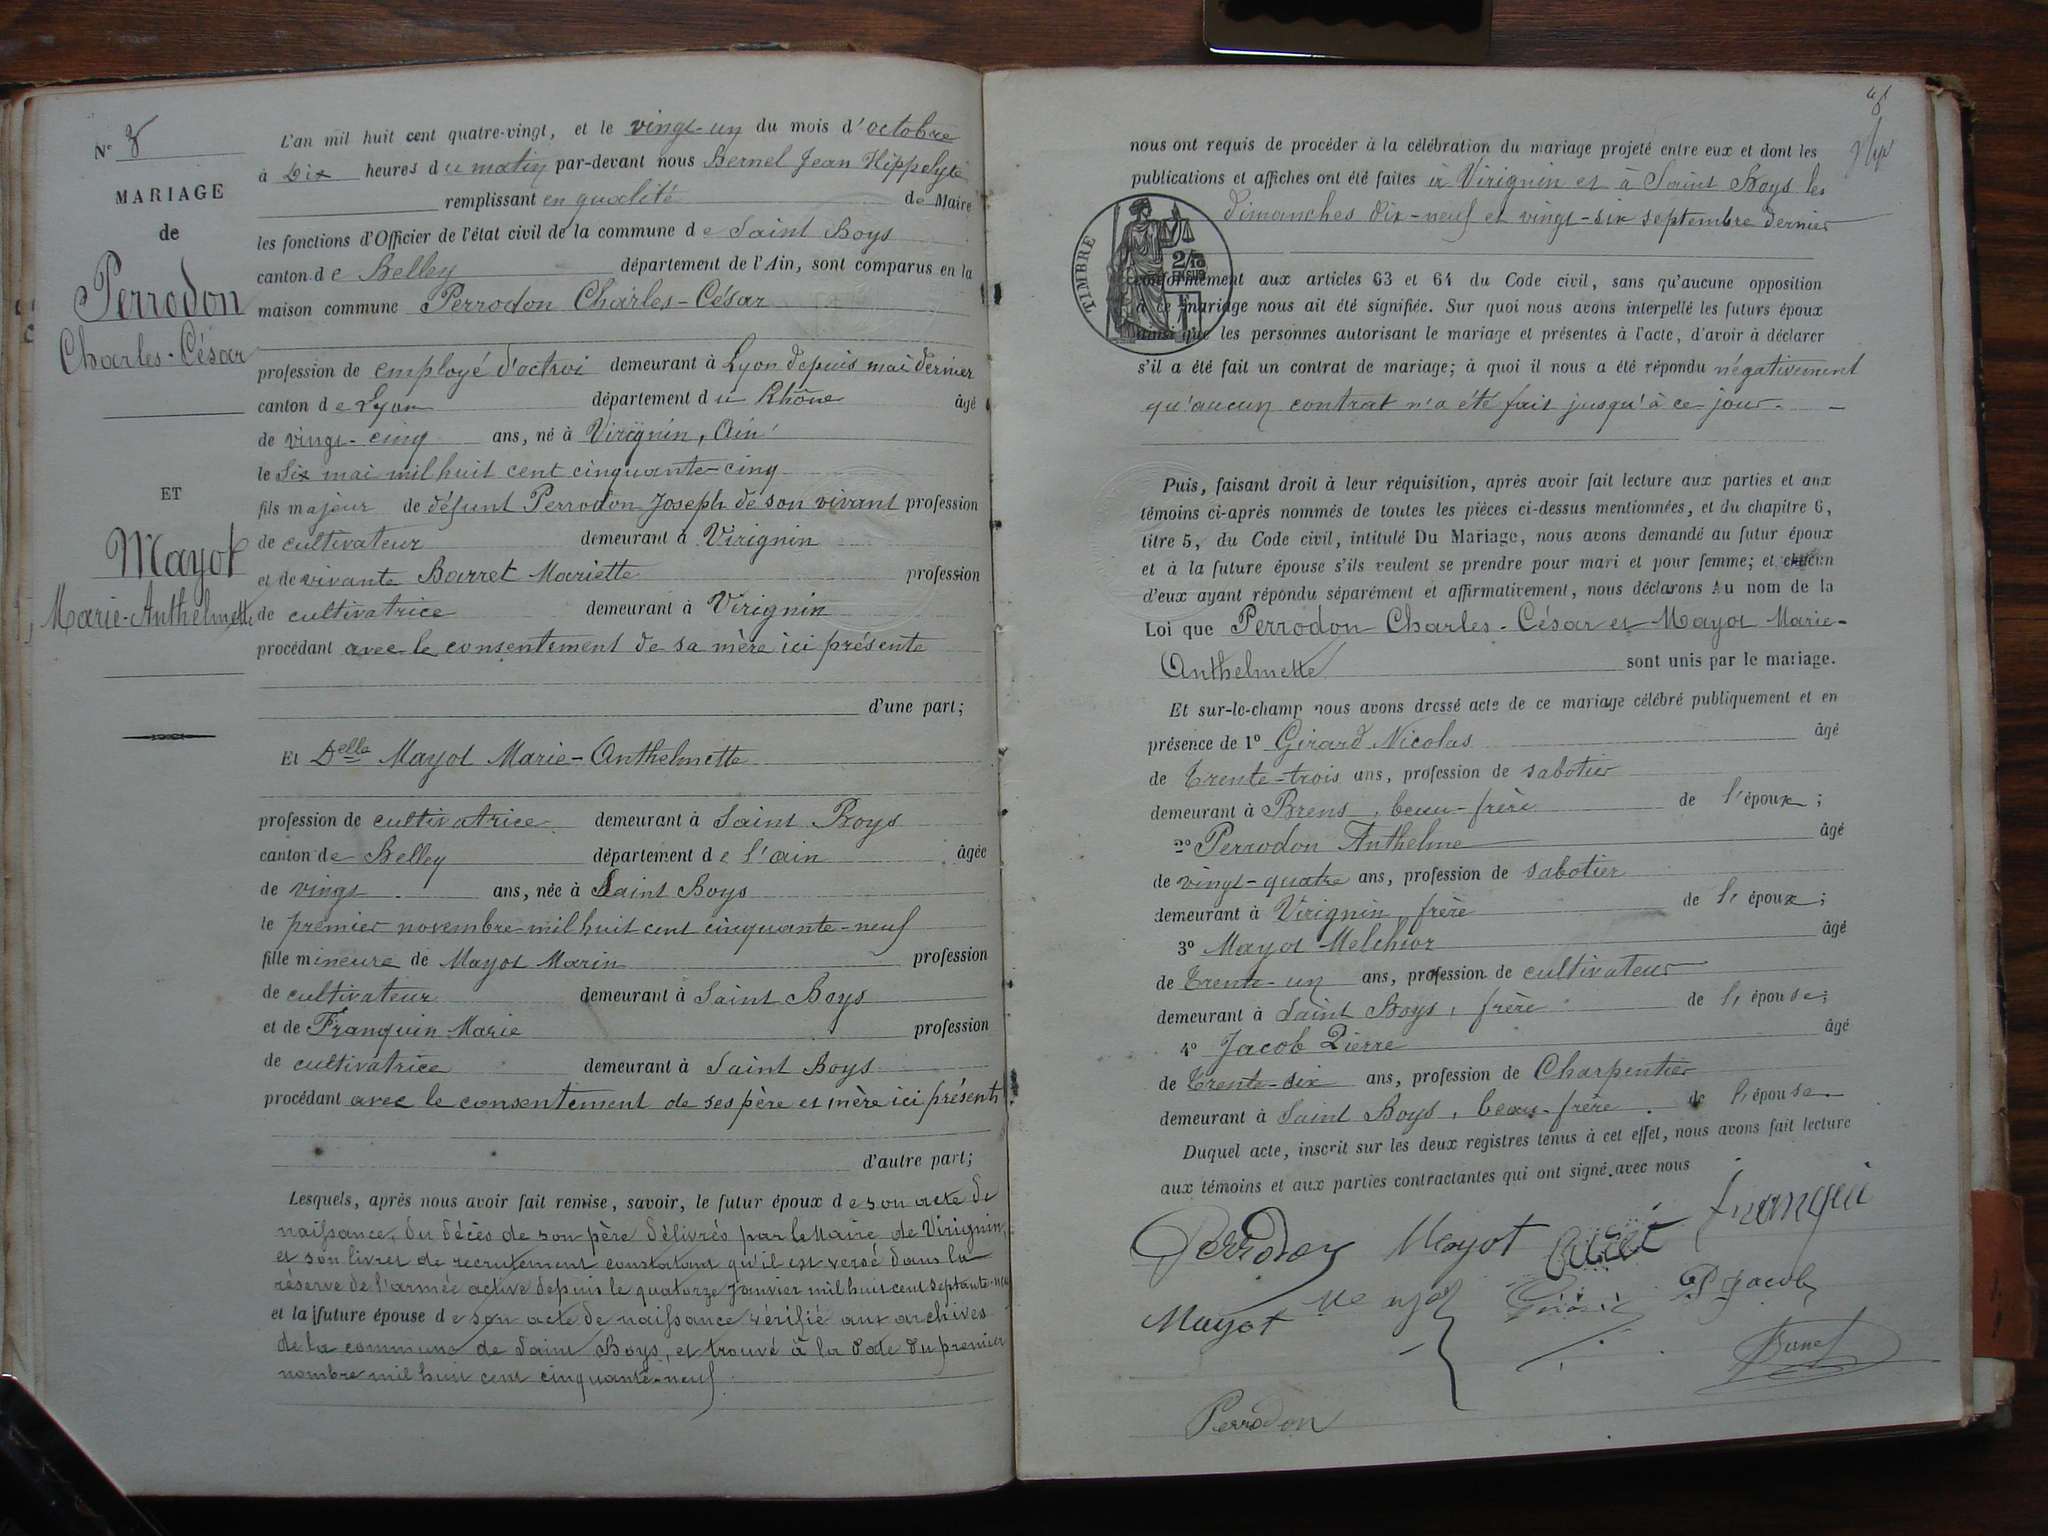 N° 8
MARIAGE
de
Perrodon
Charles-César
ET
Mayot
Marie-Anthelmette
L'an mil huit cent quatre-vingt, et le vingt-un du mois d'octobre
à Dix heures du matin par-devant nous Bernel Jean Hippolyte
remplissant en qualité de Maire
les fonctions d'Officier de l'état civil de la commune de Saint Boys
canton de Belley département de l'Ain, sont comparus en la
maison commune Perrodon Charles-César
profession de employé d'octroi demeurant à Lyon depuis mai dernier
canton de Lyon département du Rhône âgé
de vingt-cinq ans, né à Virignin, Ain
le Six mai mil huit cent cinquante-cinq
fils majeur de défunt Perrodon Joseph de son vivant profession
de cultivateur demeurant à Virignin
et de vivante Barret Mariette profession
de cultivatrice demeurant à Virignin
procédant avec le consentement de sa mère ici présente
d'une part;
Et Delle Mayot Marie-Anthelmette
profession de cultivatrice demeurant à Saint Boys
canton de Belley département de l'ain âgée
de vingt ans, née à Saint Boys
le premier novembre mil huit cent cinquante-neuf
fille mineure de Mayot Marin profession
de cultivateur demeurant à Saint Boys
et de Franquin Marie profession
de cultivatrice demeurant à Saint Boys
procédant avec le consentement de ses père et mère ici présents
d'autre part;
Lesquels, après nous avoir fait remise, savoir, le futur époux de son acte de
naissance, du décès de son père délivrés par le Maire de Virignin,
et son livret de recrutement constatant qu'il est versé dans la
réserve de l'armée active depuis le quatorze Janvier mil huit cent septante-neuf
et la future épouse de son acte de naissance vérifié aux archives
de la commune de Saint Boys, et trouvé à la date du premier
nombre mil huit cent cinquante-neuf
8
nous ont requis de procéder à la célébration du mariage projeté entre eux et dont les
publications et affiches ont été faites à Virignin et à Saint Boys les
dimanches dix-neuf et vingt-six septembre dernier
TIMBRE
conformément aux articles 63 et 64 du Code civil, sans qu'aucune opposition
à ce mariage nous ait été signifiée. Sur quoi nous avons interpellé les futurs époux
ainsi que les personnes autorisant le mariage et présentes à l'acte, d'avoir à déclarer
s'il a été fait un contrat de mariage; à quoi il nous a été répondu négativement
qu'aucun contrat n'a été fait jusqu'à ce jour.
Puis, faisant droit à leur réquisition, après avoir fait lecture aux parties et aux
témoins ci-après nommés de toutes les pièces ci-dessus mentionnées, et du chapitre 6,
titre 5, du Code civil, intitulé Du Mariage, nous avons demandé au futur époux
et à la future épouse s'ils veulent se prendre pour mari et pour femme; et chacun
d'eux ayant répondu séparément et affirmativement, nous déclarons Au nom de la
Loi que Perrodon Charles-César et Mayot Marie-
Anthelmette sont unis par le mariage.
Et sur-le-champ nous avons dressé acte de ce mariage célébré publiquement et en
présence de 1° Girard Nicolas âgé
de Trente-trois ans, profession de sabotier
demeurant à Brens, beau-frère de l'époux;
2° Perrodon Anthelme âgé
de vingt-quatre ans, profession de sabotier
demeurant à Virignin, frère de l'époux;
3° Mayot Melchior âgé
de Trente-un ans, profession de cultivateur
demeurant à Saint Boys, frère de l'épouse;
4° Jacob Pierre âgé
de Trente-six ans, profession de Charpentier
demeurant à Saint Boys, beau-frère de l'épouse.
Duquel acte, inscrit sur les deux registres tenus à cet effet, nous avons fait lecture
aux témoins et aux parties contractantes qui ont signé avec nous
Perrodon Mayot
Mayot P Jacob
Bernel
Perrodon